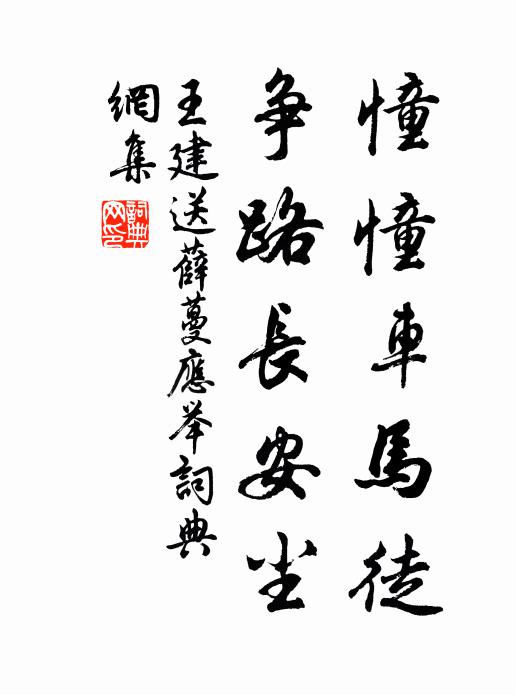 憧憧車馬徒
争路長安尘
王建送薛蔓應举詞典
網集
詞典網印